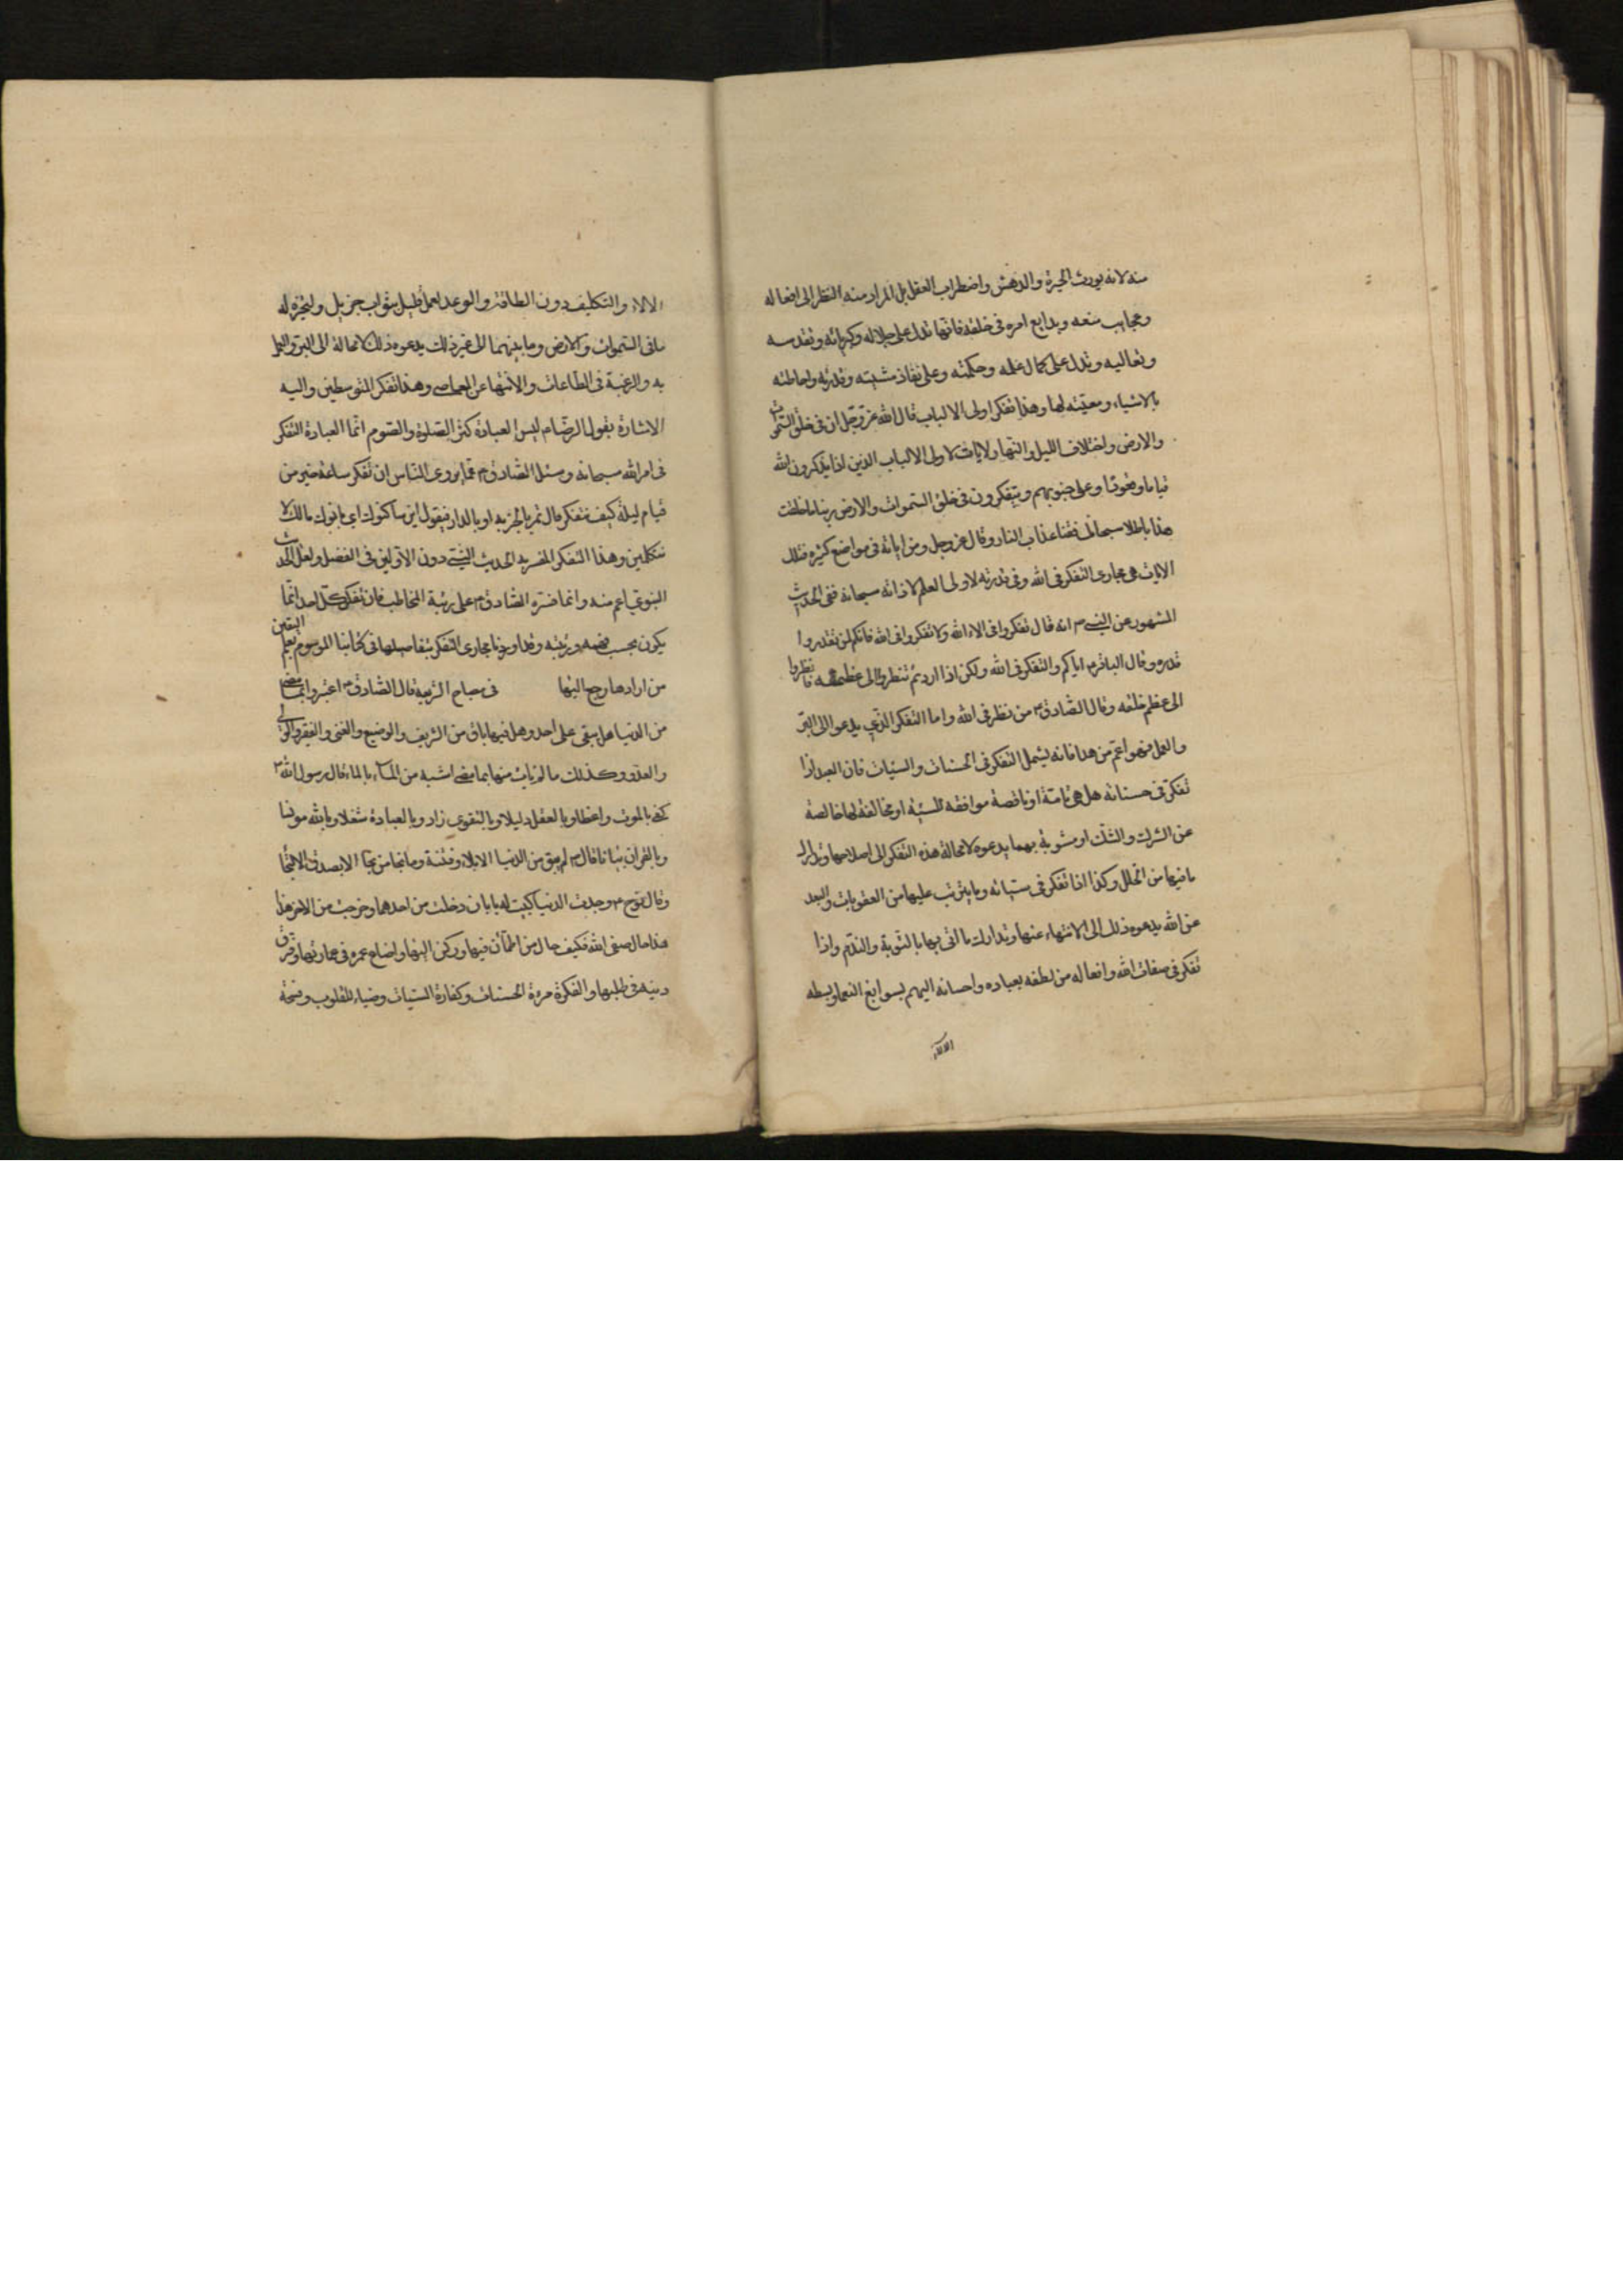 منه لانه يورث الحيرة والدهش واضطراب العقل بل المراد منه النظر الى افعاله
وعجايب صنعه وبدايع امره فى خلقه فانها تدل على جلاله وكبريائه وتقدسه
وتعاليه وتدل على كمال علمه وحكمته وعلى نفاذ مشيته وقدرته واحاطته
بالاشياء ومعيته لها وهذا تفكر اولى الالباب قال الله عز وجل ان فى خلق السموات
والارض واختلاف الليل والنهار لايات لاولى الالباب الذين يذكرون الله
قياما وقعودا وعلى جنوبهم ويتفكرون فى خلق السموات والارض ربنا ما خلقت
هذا باطلا سبحانك فقنا عذاب النار وقال عز وجل ومن اياته فى مواضع كثيرة فتلك
الايات هى مجارى التفكر فى الله وفى قدرته لاولى العلم لا ذاته سبحانه ففى الحديث
المشهور عن النبى ص انه قال تفكروا فى الاء الله ولا تفكروا فى الله فانكم لن تقدروا
قدره وقال الباقر ع اياكم والتفكر فى الله ولكن اذا اردتم تنظروا الى عظمته فانظروا
الى عظم خلقه وقال الصادق ع من نظر فى الله واما التفكر الذى يدعو الى البر
والعمل فهو اعم من هذا فانه يشمل التفكر فى الحسنات والسيئات فان العبد اذا
تفكر فى حسناته هل هى تامة او ناقصة موافقة للسنة او مخالفة لها خالصة
عن الشرك والشك او مشوبة بهما يدعوه لا محالة هذه التفكر الى اصلاحها وتدارك
ما فيها من الخلل وكذا اذا تفكر فى سيئاته وما يترتب عليها من العقوبات والبعد
عن الله يدعوه ذلك الى الانتهاء عنها وتدارك ما اتى بها بالتوبة والندم واذا
تفكر فى صفات الله وافعاله من لطفه بعباده واحسانه اليهم بسوابغ النعما وبسطه
الالاء
الالاء والتكليف دون الطاقة والوعد لعمل قليل بثواب جزيل وتسخيره له
ما فى السموات والارض وما بينهما الى غير ذلك يدعوه ذلك لا محالة الى البر والعمل
به والرغبة فى الطاعات والانتهاء عن المعاصى وهذا تفكر المتوسطين واليه
الاشارة بقول الرضا ع ليس العبادة كثرة الصلوة والصوم انما العبادة التفكر
فى امر الله سبحانه وسئل الصادق ع عما يروى الناس ان تفكر ساعة خير من
قيام ليلة كيف تتفكر قال تمر بالخربة او بالدار فيقول اين ساكنوك اين بانوك مالك لا
تتكلمين وهذا التفكر المفسر به الحديث النبى دون الاولين فى الفضل ولعل الحديث
النبوى اعم منه وانما فسره الصادق ع على رتبة المخاطب فان تفكر كل احد انما
يكون بحسب فهمه ورتبته وقد اوردنا مجارى التفكر بتفاصيلها فى كتابنا الموسوم بعلم اليقين
من ارادها رجع اليها فى مصباح الشريعة قال الصادق ع اعتبروا بما مضى
من الدنيا هل بقى على احد وهل فيها باق من الشريف والوضيع والغنى والفقير والولى
والعدو وكذلك ما لم يات منها بما مضى اشبه من الماء بالماء قال رسول الله ص
كفى بالموت واعظا وبالعقل دليلا وبالتقوى زادا وبالعبادة شغلا وبالله مونسا
وبالقران بيانا قال ص لم يبق من الدنيا الا بلاء وفتنة وما نجا من نجا الا بصدق الالتجا
وقال نوح ع وجدت الدنيا كبيت له بابان دخلت من احدهما وخرجت من الاخر هذا
هذا حال صفى الله فكيف حال من اطمأن فيها وركن اليها واضاع عمره فى عمارتها ومزق
دينه فى طلبها والفكرة مرءة الحسنات وكفارة السيئات وضياء للقلوب وفسحة